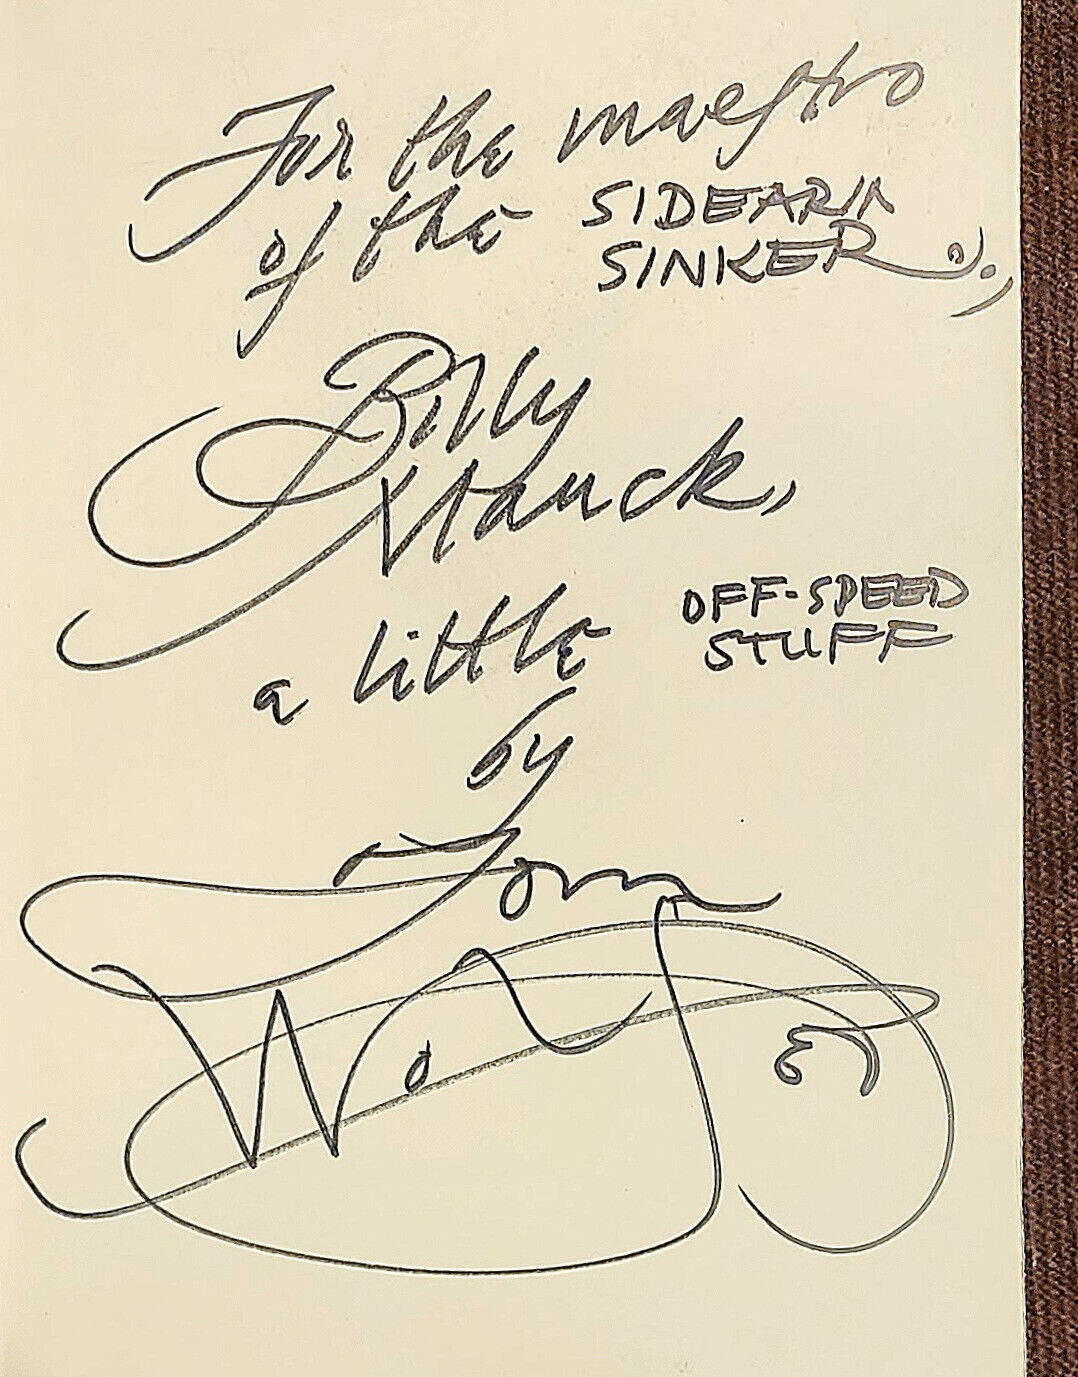 For the maestro
of the SIDEARM
SINKER,
Billy
Mauck,
a little OFF-SPEED
STUFF
by
Tom
Wolfe